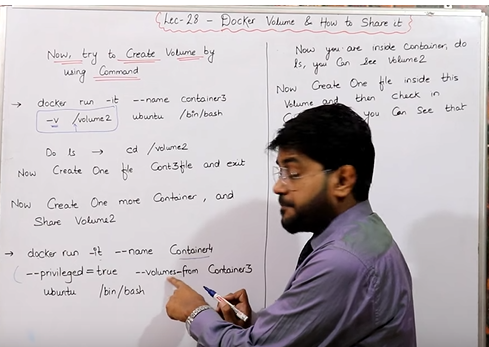 Lec-28 - Docker Volume & How to Share it
Now, try to Create Volume by
using Command
→ docker run -it --name container3
-v /volume2 ubuntu /bin/bash
Do ls → cd /volume2
Now Create One file Cont3file and exit
Now Create One more Container, and
Share Volume2
→ docker run -it --name Container4
--privileged=true --volumes-from Container3
ubuntu /bin/bash
Now you are inside Container, do
ls, you Can See Volume2
Now Create One file inside this
Volume and then check in
you Can See that